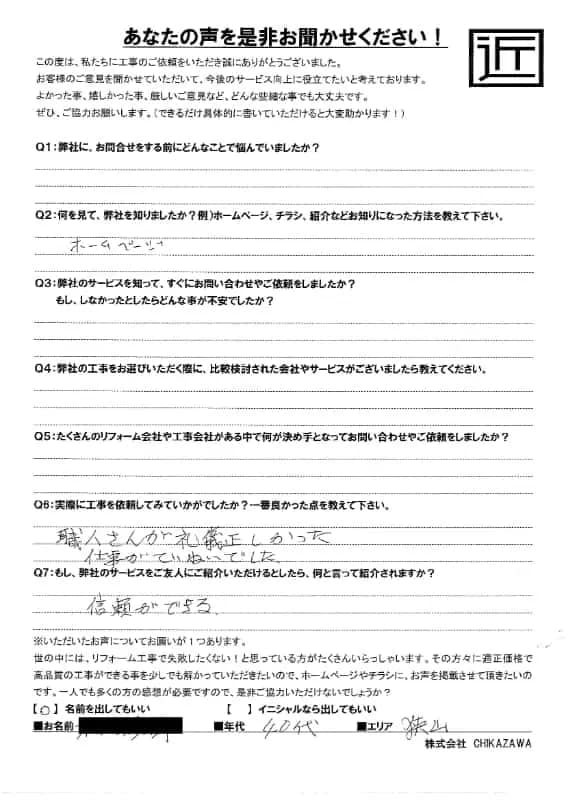 あなたの声を是非お聞かせください！
近
この度は、私たちに工事のご依頼をいただき誠にありがとうございました。
お客様のご意見を聞かせていただいて、今後のサービス向上に役立てたいと考えております。
よかった事、嬉しかった事、厳しいご意見など、どんな些細な事でも大丈夫です。
ぜひ、ご協力お願いします。（できるだけ具体的に書いていただけると大変助かります！）
Q1：弊社に、お問合せをする前にどんなことで悩んでいましたか？
Q2：何を見て、弊社を知りましたか？例）ホームページ、チラシ、紹介などお知りになった方法を教えて下さい。
ホームページ
Q3：弊社のサービスを知って、すぐにお問い合わせやご依頼をしましたか？
もし、しなかったとしたらどんな事が不安でしたか？
Q4：弊社の工事をお選びいただく際に、比較検討された会社やサービスがございましたら教えてください。
Q5：たくさんのリフォーム会社や工事会社がある中で何が決め手となってお問い合わせやご依頼をしましたか？
Q6：実際に工事を依頼してみていかがでしたか？一番良かった点を教えて下さい。
職人さんが礼儀正しかった
仕事がていねいでした
Q7：もし、弊社のサービスをご友人にご紹介いただけるとしたら、何と言って紹介されますか？
信頼ができる
※いただいたお声についてお願いが１つあります。
世の中には、リフォーム工事で失敗したくない！と思っている方がたくさんいらっしゃいます。その方々に適正価格で
高品質の工事ができる事を少しでも解かっていただきたいので、ホームページやチラシに、お声を掲載させて頂きたいの
です。一人でも多くの方の感想が必要ですので、是非ご協力いただけないでしょうか？
【○】名前を出してもいい 【 】イニシャルなら出してもいい
■お名前 ■年代 40代 ■エリア 狭山
株式会社 CHIKAZAWA